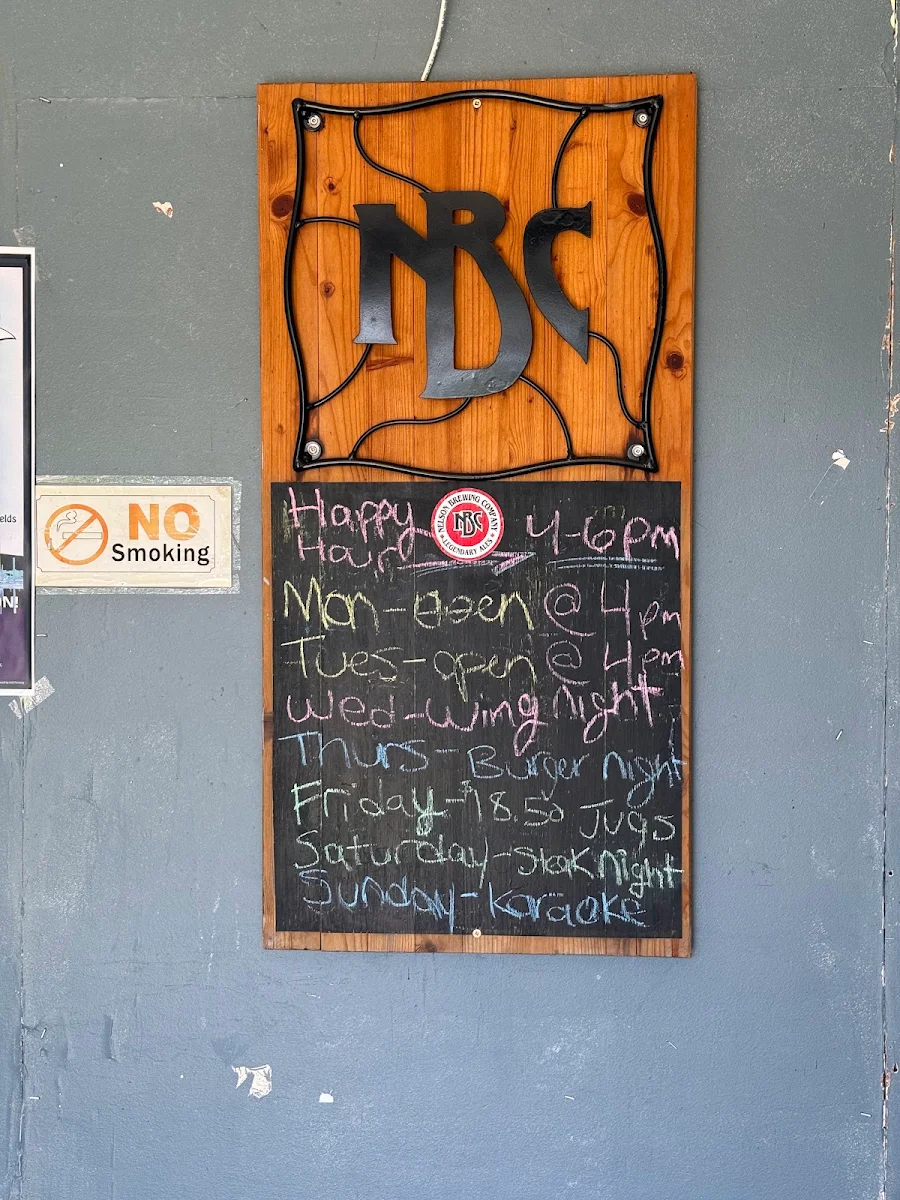 NBC
Happy Hour 4-6pm
NELSON BREWING COMPANY
NBC
LEGENDARY ALES
Mon-open @ 4pm
Tues-open @ 4pm
Wed-wing night
Thurs-Burger night
Friday-$18.50 Jugs
Saturday-Steak Night
Sunday-Karaoke
NO
Smoking
elds
N!